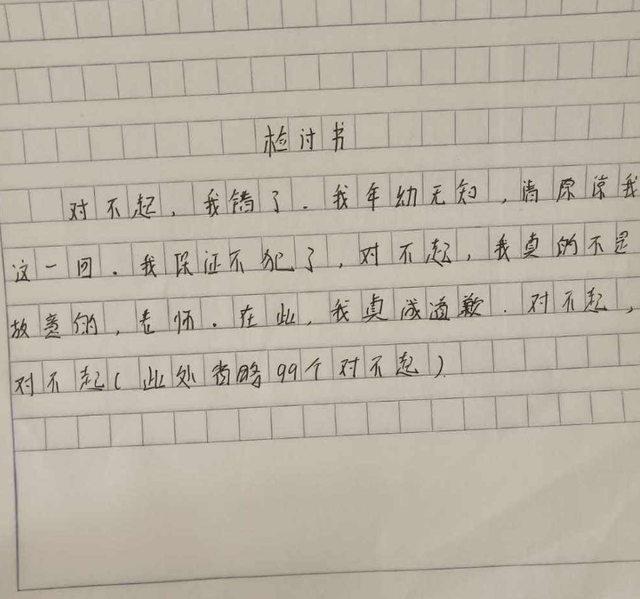 检讨书
对不起，我错了．我年幼无知，请原谅我
这一回．我保证不犯了，对不起，我真的不是
故意的，老师．在此，我真诚道歉．对不起，
对不起（此处省略99个对不起）